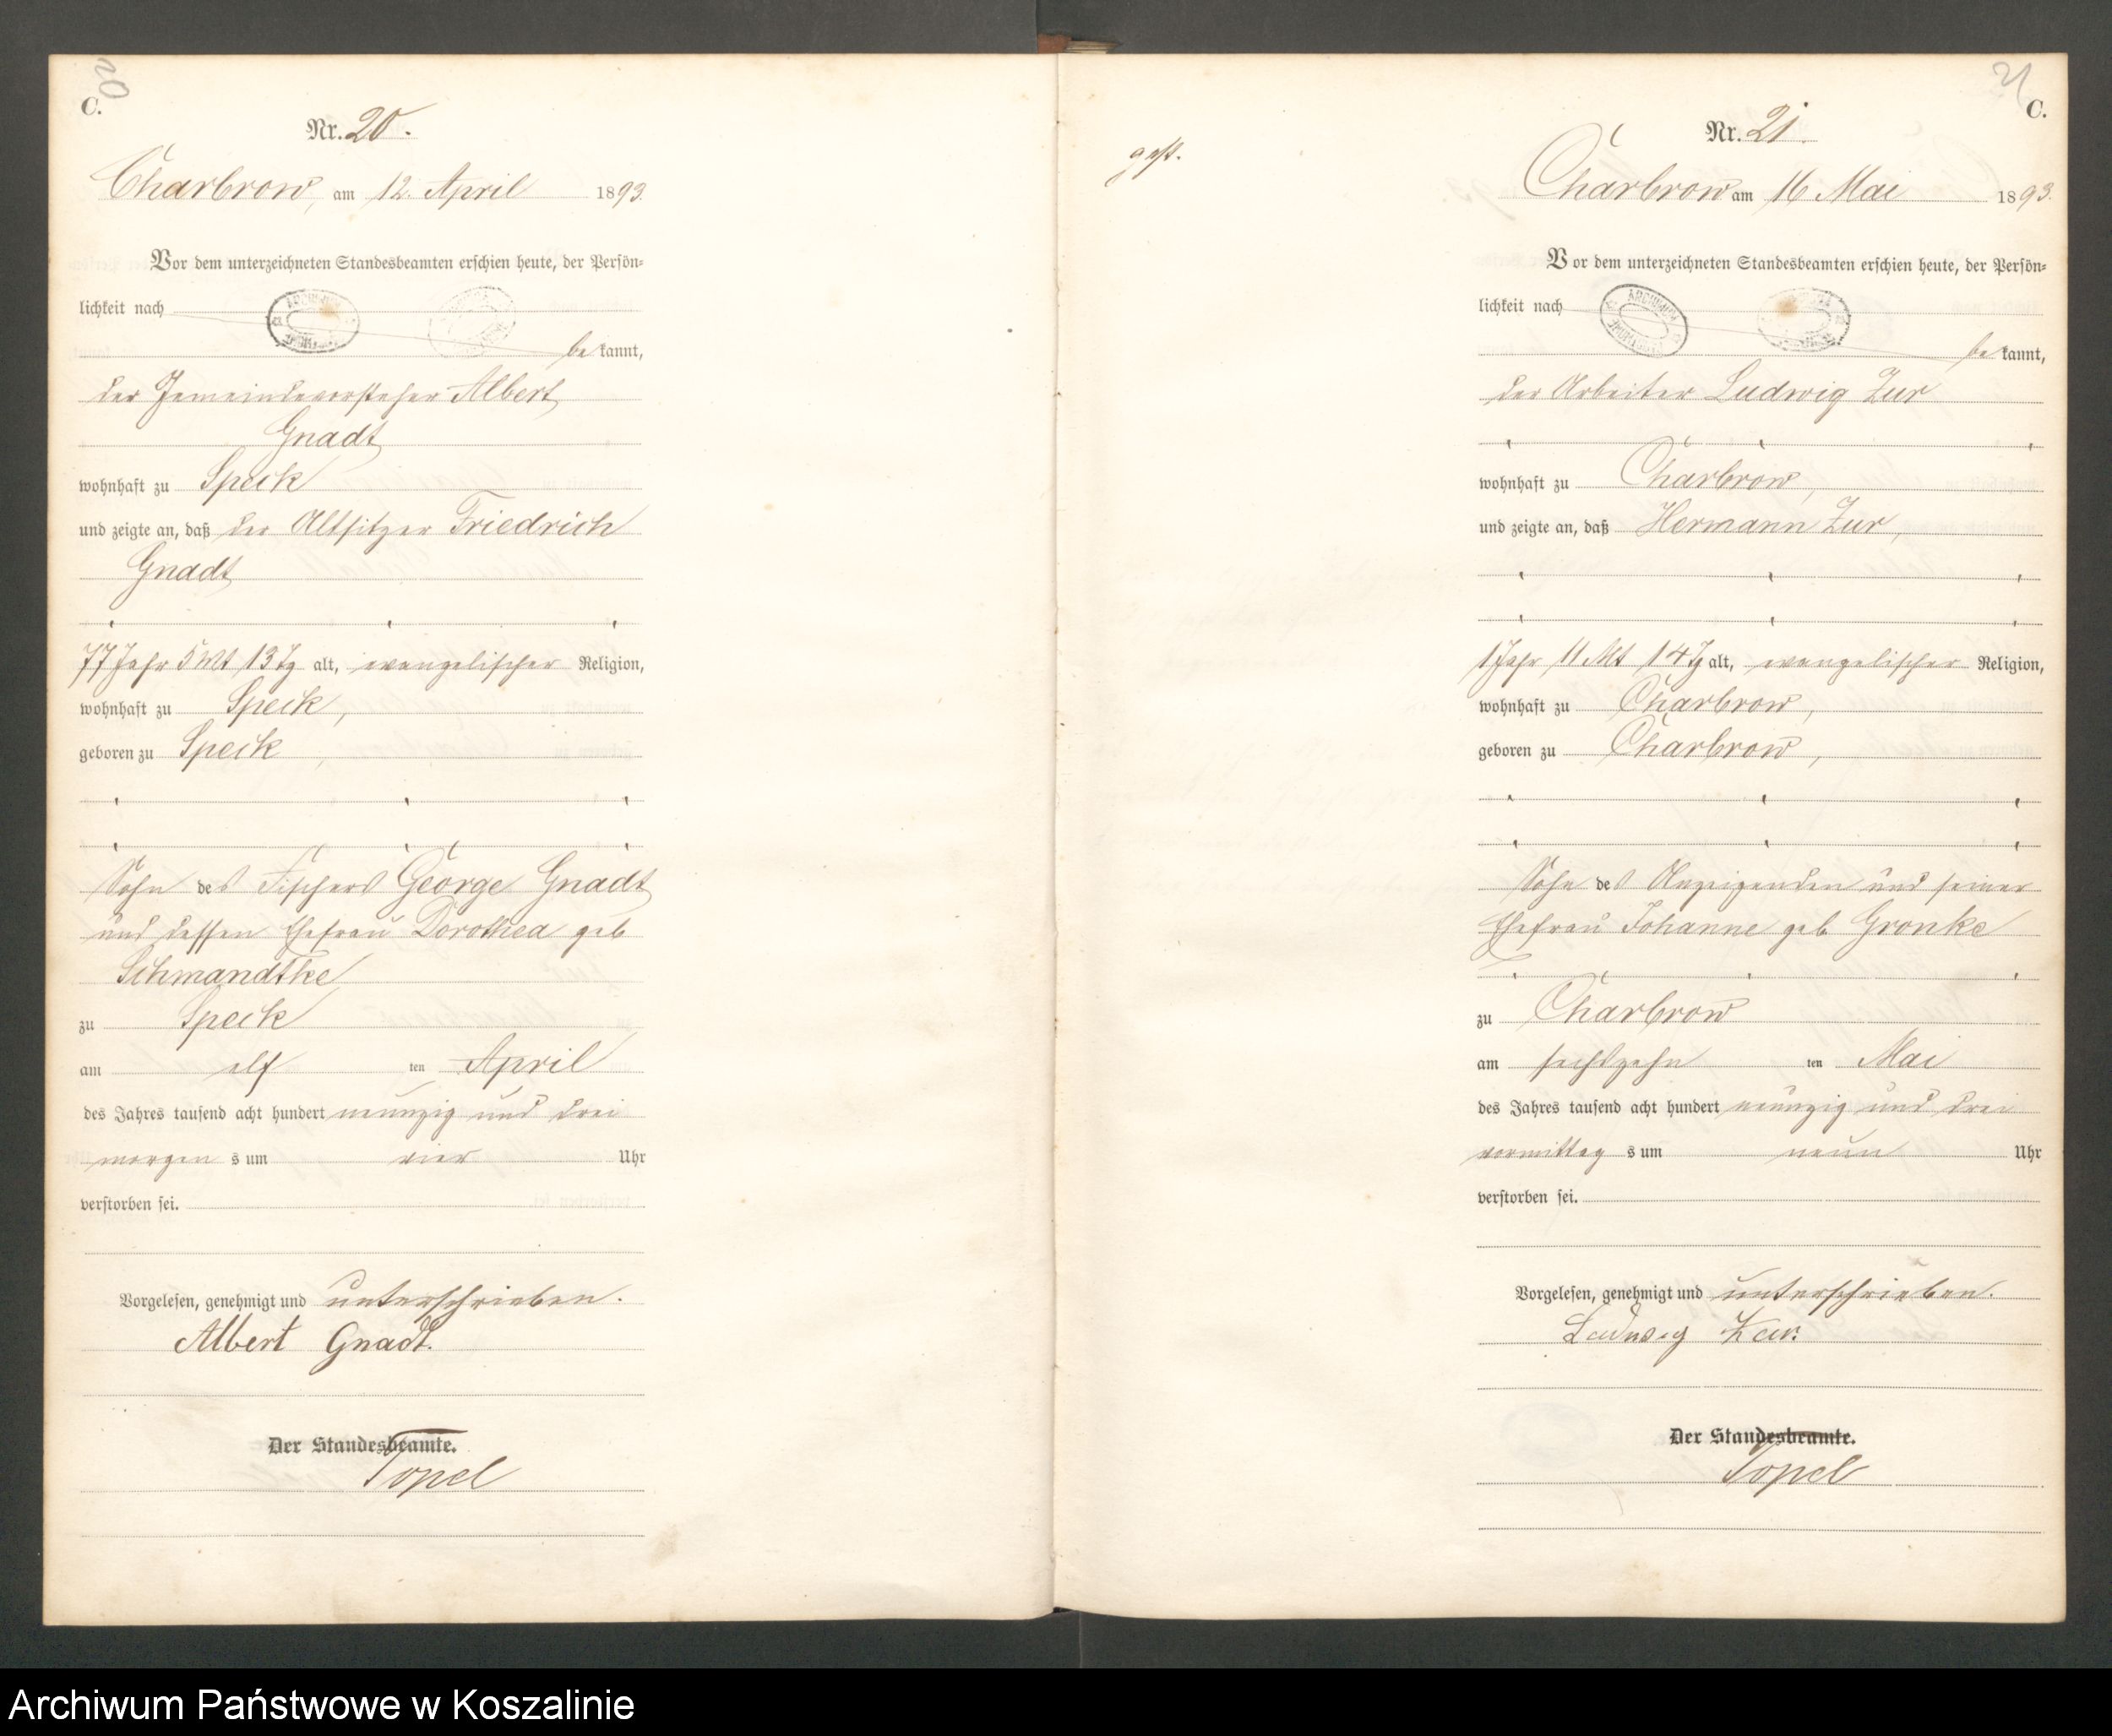 20
C.
Nr. 20.
Charbrow, am 12. April 1893.
Vor dem unterzeichneten Standesbeamten erschien heute, der Persön=
lichkeit nach
bekannt,
der Gemeindevorsteher Albert
Gnadt
wohnhaft zu Speck
und zeigte an, daß der Altsitzer Friedrich
Gnadt
77 Jahr 5 Mt 13 Tg alt, evangelischer Religion,
wohnhaft zu Speck,
geboren zu Speck,
Sohn des Fischers George Gnadt
und dessen Ehefrau Dorothea geb
Schmandtke
zu Speck
am elf ten April
des Jahres tausend acht hundert neunzig und drei
morgens um vier Uhr
verstorben sei.
Vorgelesen, genehmigt und unterschrieben.
Albert Gnadt.
Der Standesbeamte.
Topel
21
C.
gest.
Nr. 21.
Charbrow am 16 Mai 1893.
Vor dem unterzeichneten Standesbeamten erschien heute, der Persön=
lichkeit nach
bekannt,
der Arbeiter Ludwig Zur
wohnhaft zu Charbrow,
und zeigte an, daß Hermann Zur,
1 Jahr 11 Mt 14 Tg alt, evangelischer Religion,
wohnhaft zu Charbrow,
geboren zu Charbrow,
Sohn des Anzeigenden und seiner
Ehefrau Johanne geb Gronke
zu Charbrow
am sechszehn ten Mai
des Jahres tausend acht hundert neunzig und drei
vormittags um neun Uhr
verstorben sei.
Vorgelesen, genehmigt und unterschrieben.
Ludwig Zur.
Der Standesbeamte.
Topel
Archiwum Państwowe w Koszalinie